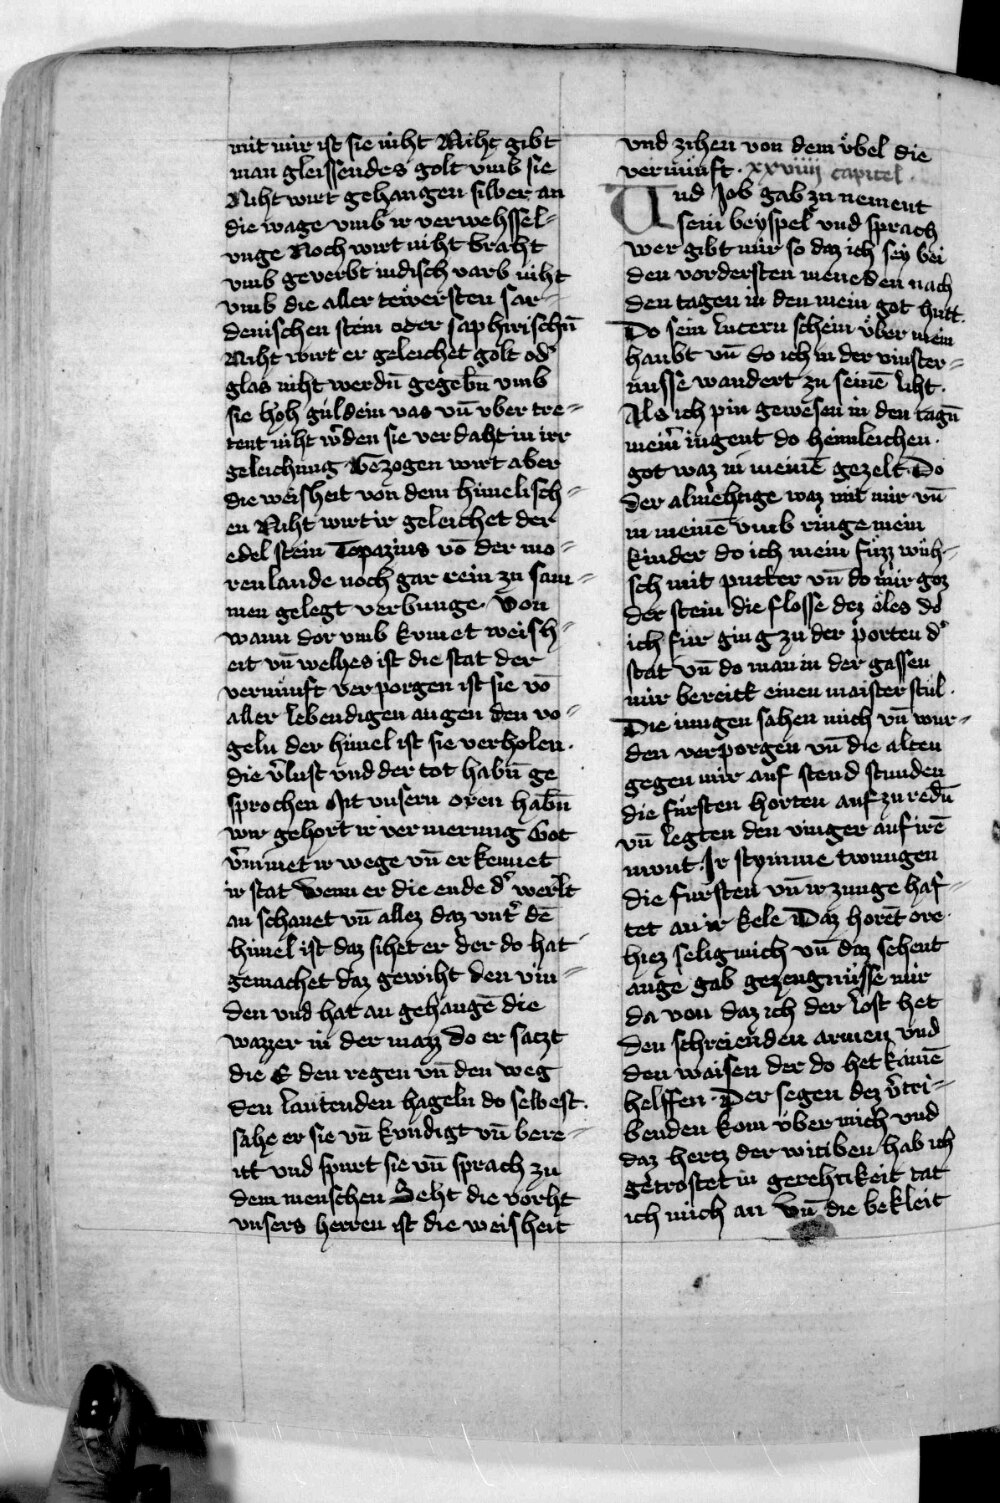 mit mir ist sie niht Niht gibt
man gleissendes golt vmb sie
Niht wirt gehangen silber an
die wage vmb ir verwehssel=
vnge Noch wirt niht braht
vmb geverbt indisch varb niht
vmb die aller tewersten sar=
denischen stein oder saphirischn̄
Niht wirt er geleichet golt od̾
glas niht werdn̄ gegebn̄ vmb
sie hoh guldein vas vn̄ vber tre=
tent niht w̾den sie verdaht in irr
geleichung Gezogen wirt aber
die weisheit von dem himelisch=
en Niht wirt ir geleichet der
edel stein Topazius vō der mo=
renlande noch gar rein zu sam=
men gelegt verbunge. Von
wann dor vmb kvmet weish=
eit vn̄ welhes ist die stat der
vernunft verporgen ist sie vō
aller lebendigen augen den vo=
geln der himel ist sie verholen.
die v̾lust vnd der tot habn̄ ge
sprochen Mit vnsern oren habn̄
wir gehort ir vermerung Got
v̾nimet ir wege vn̄ erkennet
ir stat Wenn er die ende d̾ werlt
an schauet vn̄ allez daz vnt̾ dē
himel ist daz sihet er Der do hat
gemachet daz gewiht den vin=
den vnd hat an gehangē die
wazzer in der mazz do er saczt
die E den regen vn̄ den weg
den lautenden hageln do selbest.
sahe er sie vn̄ kvndigt vn̄ bere=
itt vnd spurt sie vn̄ sprach zu
dem menschen Seht die vorht
vnsers herren ist die weisheit
vnd zihen von dem v̈bel die
vernunft. xxviiii capitel
Vnd Job gab zu nement
sein beyspel vnd sprach
wer gibt mir so daz ich sey bei
den vordersten meneden nach
den tagen in den mein got hutt.
Do sein lucern schein v̈ber mein
haubt vn̄ do ich in der vinster=
nusse wandert zu seinē liht.
Als ich pin gewesen in den tagn̄
mein̾ iugent do heimleichen.
got waz in meinē gezelt. Do
der almehtige waz mit mir vn̄
in meinē vmb ringe mein
kinder do ich mein fuzz wuh=
sch mit putter vn̄ do mir goz
der stein die flosse dez oles do
ich fur ging zu der porten d̾
stat vn̄ do man in der gassen
mir bereitt einen maister stul.
Die iungen sahen mich vn̄ wur=
den verporgen vn̄ die alten
gegen mir auf stend stunden
die fursten horten auf zu redn̄
vn̄ legten den vinger auf irē
munt. Ir stymme twungen
die fursten vn̄ ir zunge haf=
tet an ir kele Daz horēt ore.
hiez selig mich vn̄ daz sehent
auge gab gezeugnusse mir
da von daz ich der lost het
den schreienden armen vnd
den waisen der do het kainē
helffen. Der segen dez v̾tri=
benden kom v̈ber mich vnd
daz hertz der witiben hab ich
getrostet in gerehtikeit tat
ich mich an Vn̄ die bekleit